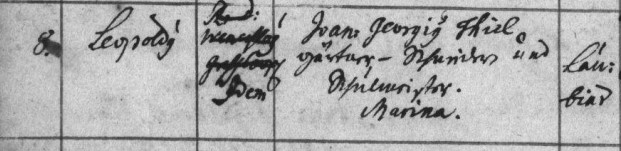 8. Leopoldÿ
Idem
Joan: Georgiÿ Thiel
gärtner – Schneider und
Schulmeister.
Marina.
Lau-
bias